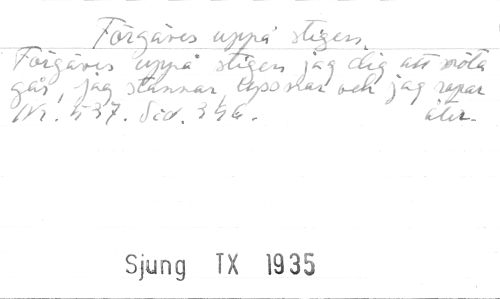 Förgäves uppå stigen.
Förgäves uppå stigen jag dig att möta
går, jag stannar, lyssnar och jag ropar
Nr. 537. Sid. 346. åter.
Sjung TX 1935